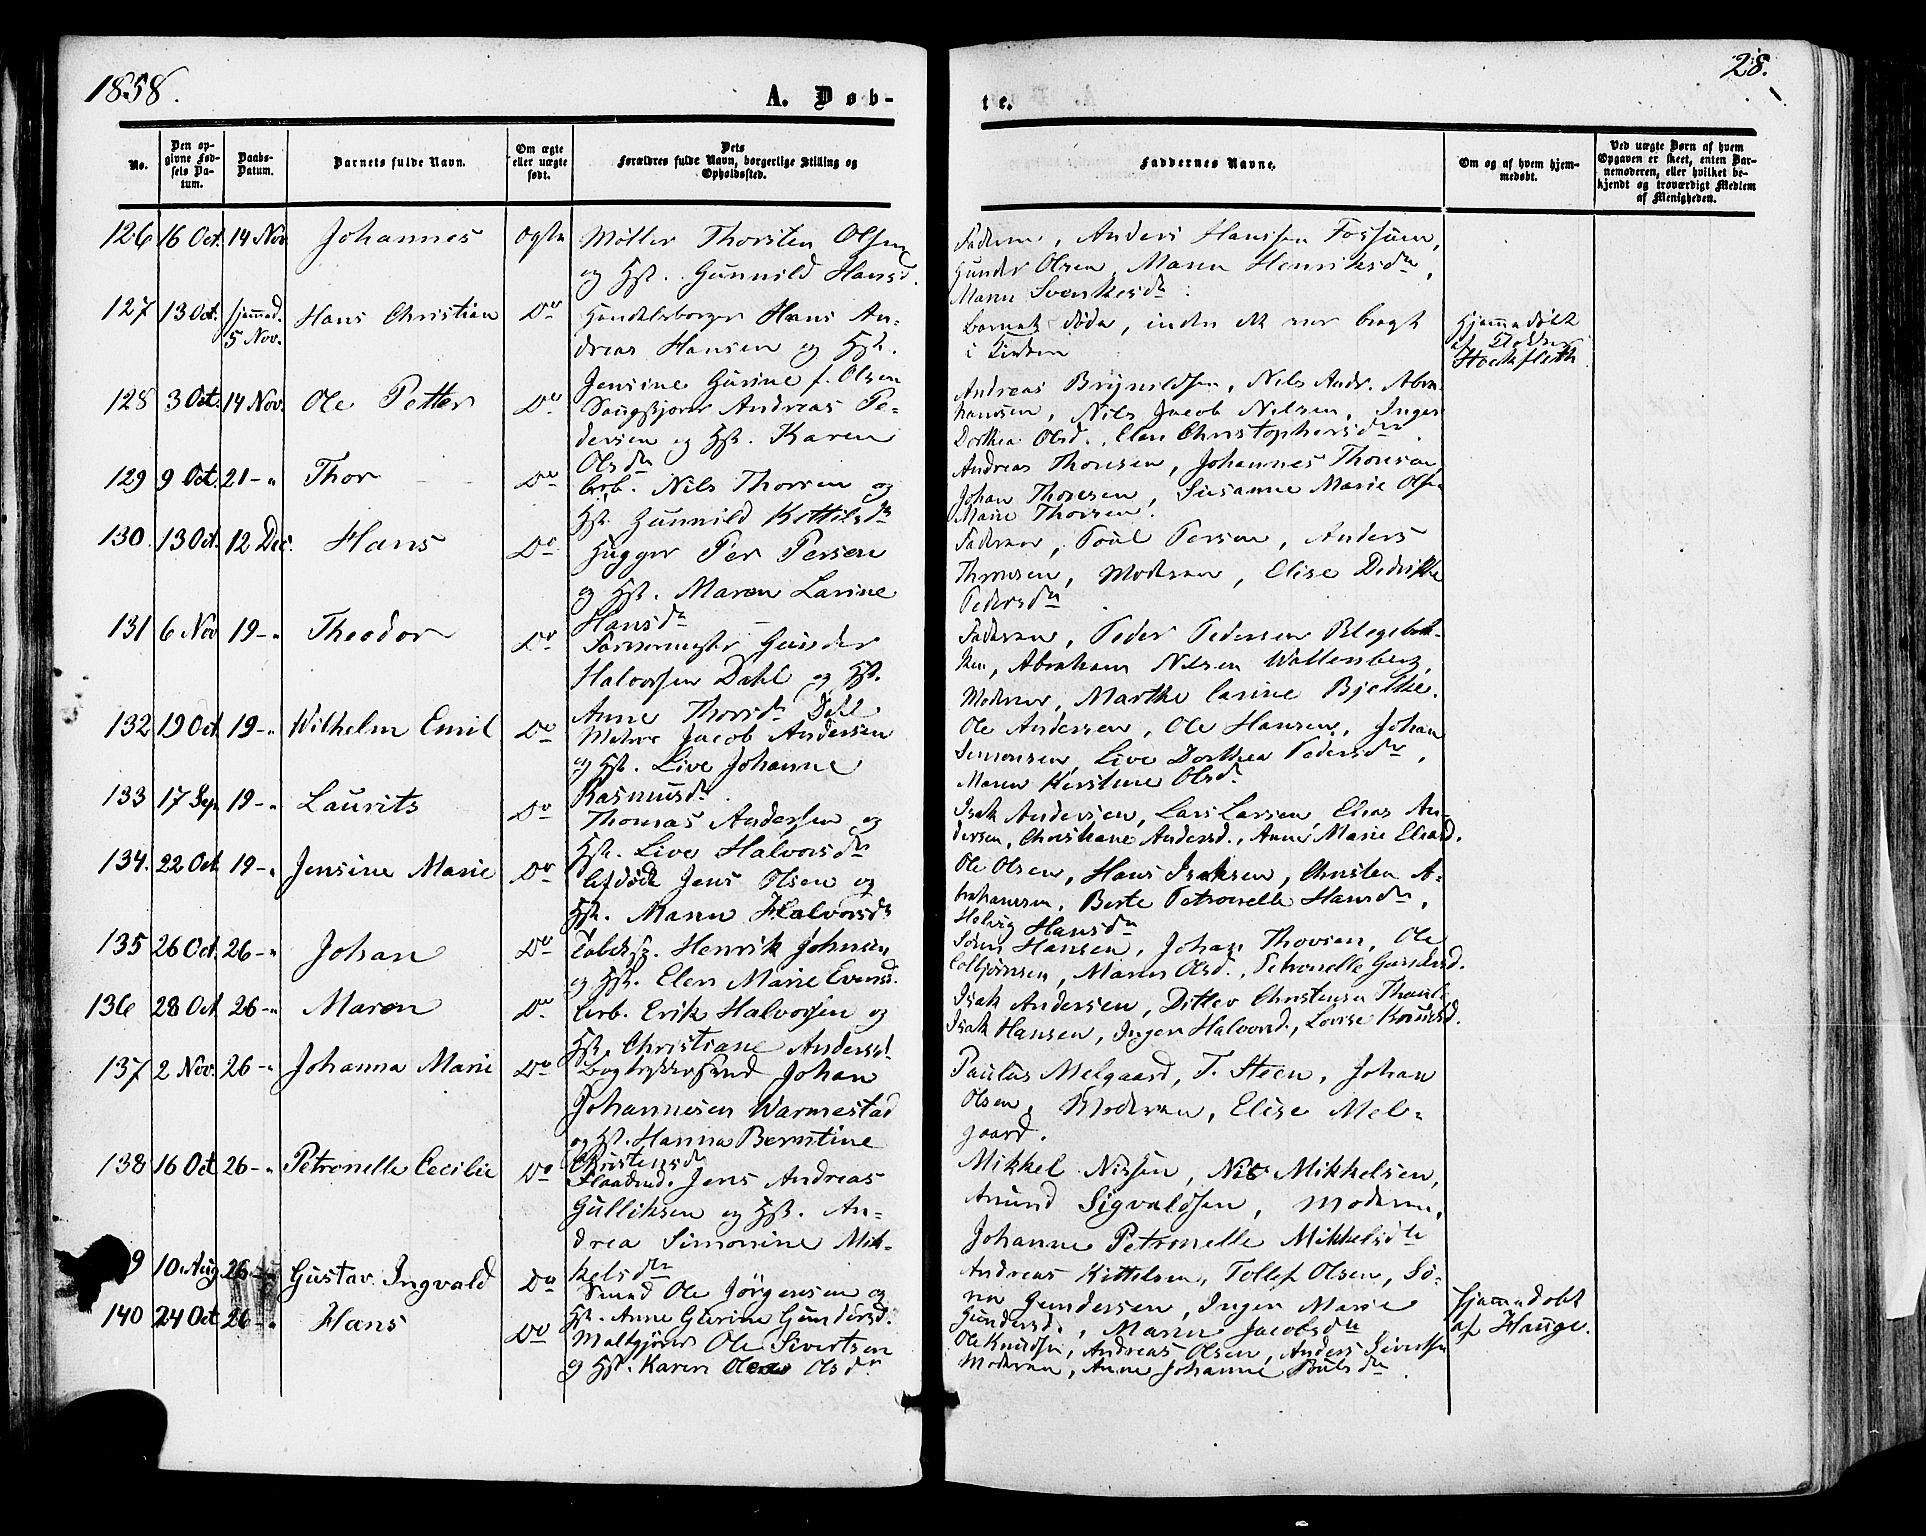 1858.
A. Døb-
te.
28.
No.
Den op-
givne Fød-
sels Da-
tum.
Daabs-
Datum.
Barnets fulde Navn.
Om ægte
eller uægte
født.
Dets
Forældres fulde Navn, borgerlige Stilling og
Opholdssted.
Faddernes Navne.
Om og af hvem hjem-
medøbt.
Ved uægte Børn af hvem
Opgaven er skeet, enten Bar-
nemoderen, eller hvilket be-
kjendt og troværdigt Medlem
af Menigheden.
126 16 Oct. 14 Nov Johannes Ægte Møller Thorsten Olsen
og Hst. Gunnild Hansd.
Faderen, Anders Hanssen Fossum,
Gunder Olsen, Maren Henriksdtr,
Maren Svenkesdtr.
127 13 Oct. hjemmed. 5 Nov. Hans Christian Do Handelsborger Hans An-
dreas Hansen og Hst.
Jensine Gurine f. Olsen
Barnet døde, inden det var bragt
i Kirken
Hjemmedøbt
af
Stockfleth.
128 3 Oct. 14 Nov. Ole Petter Do Andreas Pe-
dersen og Hst. Karen
Olsdtr
Andreas Brynildsen, Nils Andr. Abra-
hamsen, Nils Jacob Nilsen, Inger
Dorthea Olsd., Elen Christophersdtr.
129 9 Oct. 21 - " Thor Do Arb. Nils Thorsen og
Hst. Gunnild Kittilsdtr
Andreas Thorsen, Johannes Thorsen,
Johan Thoresen, Susanne Marie Olsen
Marie Thorsen.
130. 13 Oct. 12 Dec. Hans Do Hugger Per Persen
og Hst. Maren Larine
Hansdtr
Faderen, Poul Persen, Anders
Thomsen, Moderen, Elise Dedrikke
Pedersdtr
131 6 Nov 19 - " Theodor Do Gunder
Halvorsen Dahl og Hst.
Anne Thorsdtr Dahl
Faderen, Peder Pedersen Blegebak-
ken, Abraham Nilsen Wallenberg,
Moderen, Marthe Carine Bjelke.
132 19 Oct 19 - " Wilhelm Emil Do Matros Jacob Andersen
og Hst. Live Johanne
Rasmusdtr.
Ole Andersen, Ole Hansen, Johan
Simonsen, Live Dorthea Pedersdtr,
Maren Kirstine Olsd.
133 17 Sep. 19 - " Laurits Do Thomas Andersen og
Hst. Live Halvorsdtr
Isak Andersen, Lars Larsen, Elias An-
dersen, Christiane Andersd., Anne Marie Eliasd.
134. 22 Oct 19 - " Jensine Marie Do Afdøde Jens Olsen og
Hst. Maren Halvorsdtr
Ole Olsen, Hans Isaksen, Christen A-
brahamsen, Berte Petronelle Hansdtr,
Helvig Hansdtr
135 26 Oct. 26 - " Johan Do Henrik Johnsen
og Hst. Elen Marie Evensd.
Søren Hansen, Johan Thovsen, Ole
Colbjørnsen, Maren Olsd., Petronelle Gundersd.
136 28 Oct 26 - " Maren Do Arb. Erik Halvorsen og
Hst. Christiane Andersd.
Isak Andersen, Ditlev Christensen
Isak Hansen, Inger Halvorsd., Lovise Knudsd.
137 2 Nov. 26 - " Johanna Marie Do Bogtrykkersvend Johan
Johannesen Warmestad
og Hst. Hanna Berntine
Christensd.
Paulus Melgaard, T. Steen, Johan
Olsen, Moderen, Elise Mel-
gaard.
138 16 Oct 26 - " Petronelle Cecilie Do Jens Andreas
Gulliksen og Hst. An-
drea Simonine Mik-
kelsdtr
Mikkel Nissen, Nils Mikkelsen,
Anund Sigvaldsen, Moderen,
Johanne Petronelle Mikkelsdtr
9 10 Aug 26 - " Gustav Ingvald Do Smed Ole Jørgensen og
Hst. Anne Gurine Gundersd.
Andreas Kittelsen, Tollef Olsen, Sø-
ren Gundersen, Inger Marie
Gundersd., Maren Jacobsdtr
Hjemmedøbt
af Hauge.
140 24 Oct 26 - " Hans Do Maltgjører Ole Sivertsen
og Hst. Karen Olea Olsdtr
Ole Knudsen, Andreas Olsen, Anders Sivertsen
Moderen, Anne Johanne Poulsdtr.